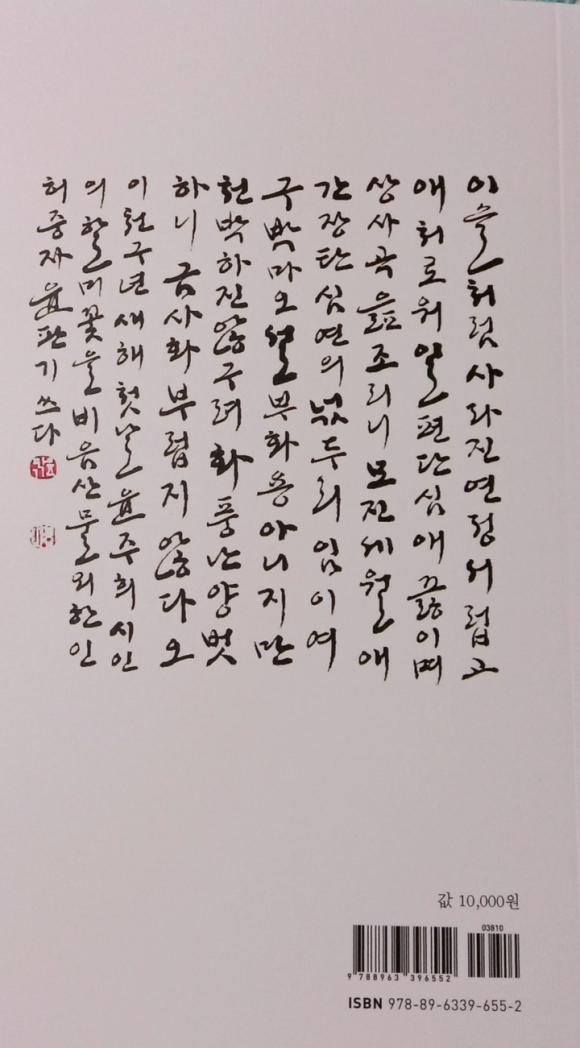 이슬처럼 사라진 연정 서럽고
애처로워 일편단심 애끓이며
상사곡 읊조리니 모진 세월 애
간장 단심 연의 넋두리 임이여
구박마오 설부화용 아니지만
천박하진 않구려 화풍난양 벗
하니 금사화 부럽지 않다오
이천구년 새해 첫날 尹주희 시인
의 할미꽃을 비음산 물외한인
허중자 尹판기 쓰다
값 10,000원
03810
9 788963 396552
ISBN 978-89-6339-655-2